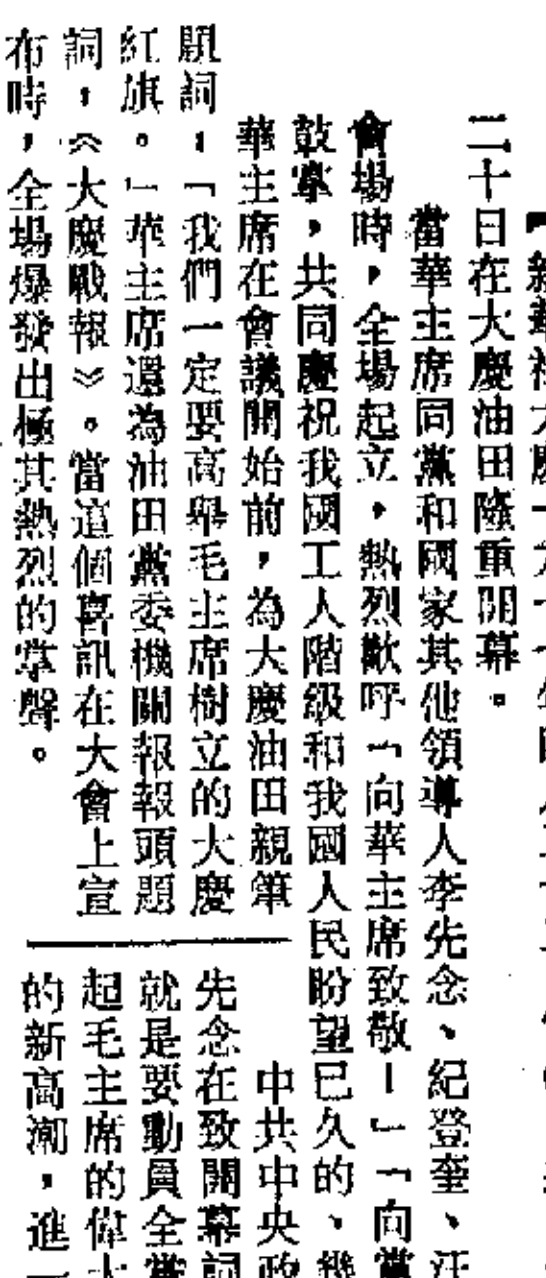 二十日在大慶油田隆重開幕。
當華主席同黨和國家其他領導人李先念、紀登奎、汪
會場時，全場起立，熱烈歡呼「向華主席致敬！」「向黨
鼓掌，共同慶祝我國工人階級和我國人民盼望已久的、幾
華主席在會議開始前，為大慶油田親筆
題詞：「我們一定要高舉毛主席樹立的大慶
紅旗。」華主席還為油田黨委機關報報頭題
詞，《大慶戰報》。當這個喜訊在大會上宣
布時，全場爆發出極其熱烈的掌聲。
中共中央政
先念在致開幕詞
就是要動員全黨
起毛主席的偉大
的新高潮，進一